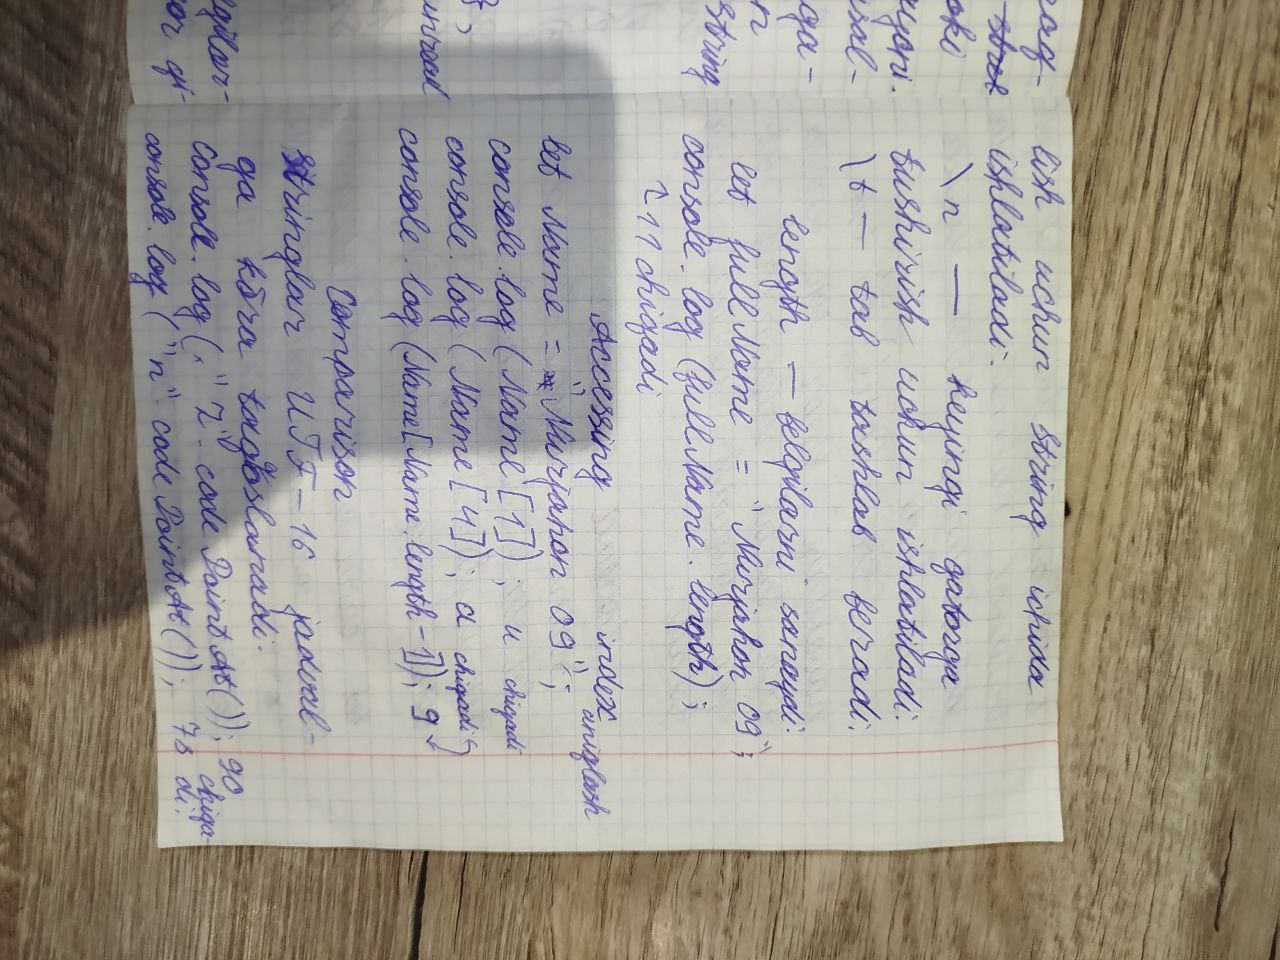 lish uchun string ichida
ishlatiladi.
\n — keyingi qatorga
tushirish uchun ishlatiladi.
\t — tab tashlab beradi.
length — belgilarni sanaydi.
let fullName = "Nurjahon 09";
console.log(fullName.length);
11 chiqadi
Accessing index aniqlash
let Name = "Nurjahon 09";
console.log(Name[1]); u chiqadi
console.log(Name[4]); a chiqadi
console.log(Name[Name.length-1]); 9
Comparison
Stringlar UTF-16 jadval-
ga ko'ra taqqoslanadi.
console.log("Z".codePointAt()); 90
console.log("n".codePointAt()); 78 chiqa-
di.